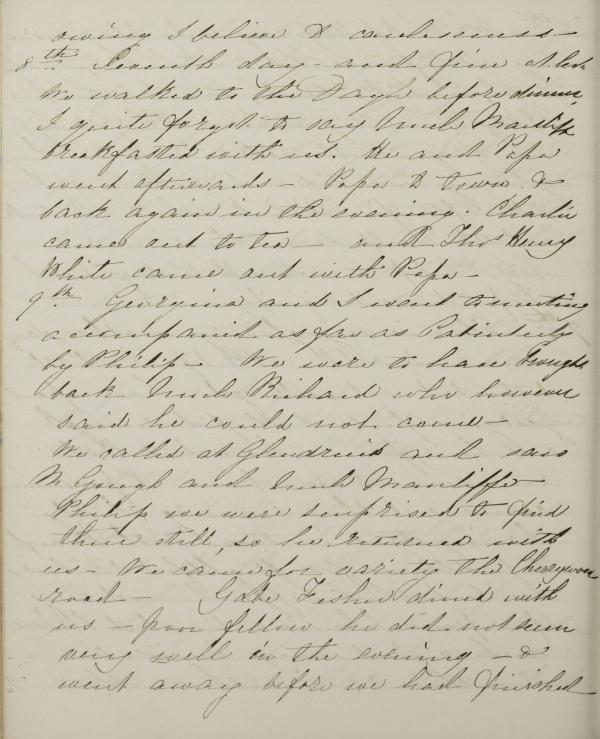 owing I believe to carelessness -
8th. Seventh day - and fine
We walked to the Dargle before dinner.
I quite forgot to say Uncle Mansliffe
breakfasted with us. He and Papa
went afterwards - Papa to town &
back again in the evening. Charlie
came out to tea - and Thos Henry
White came out with Papa -
9th Georgina and I went to meeting
accompanied as far as
by Philip - We were to have brought
back Uncle Richard who however
said he could not come -
We called at Glendruid and saw
M Gough and Uncle Mansliffe
Philip we were surprised to find
there still, so he returned with
us - We came for variety the Cherrywood
road - Gabe Fisher dined with
us - poor fellow he did not seem
very well in the evening - &
went away before we had finished